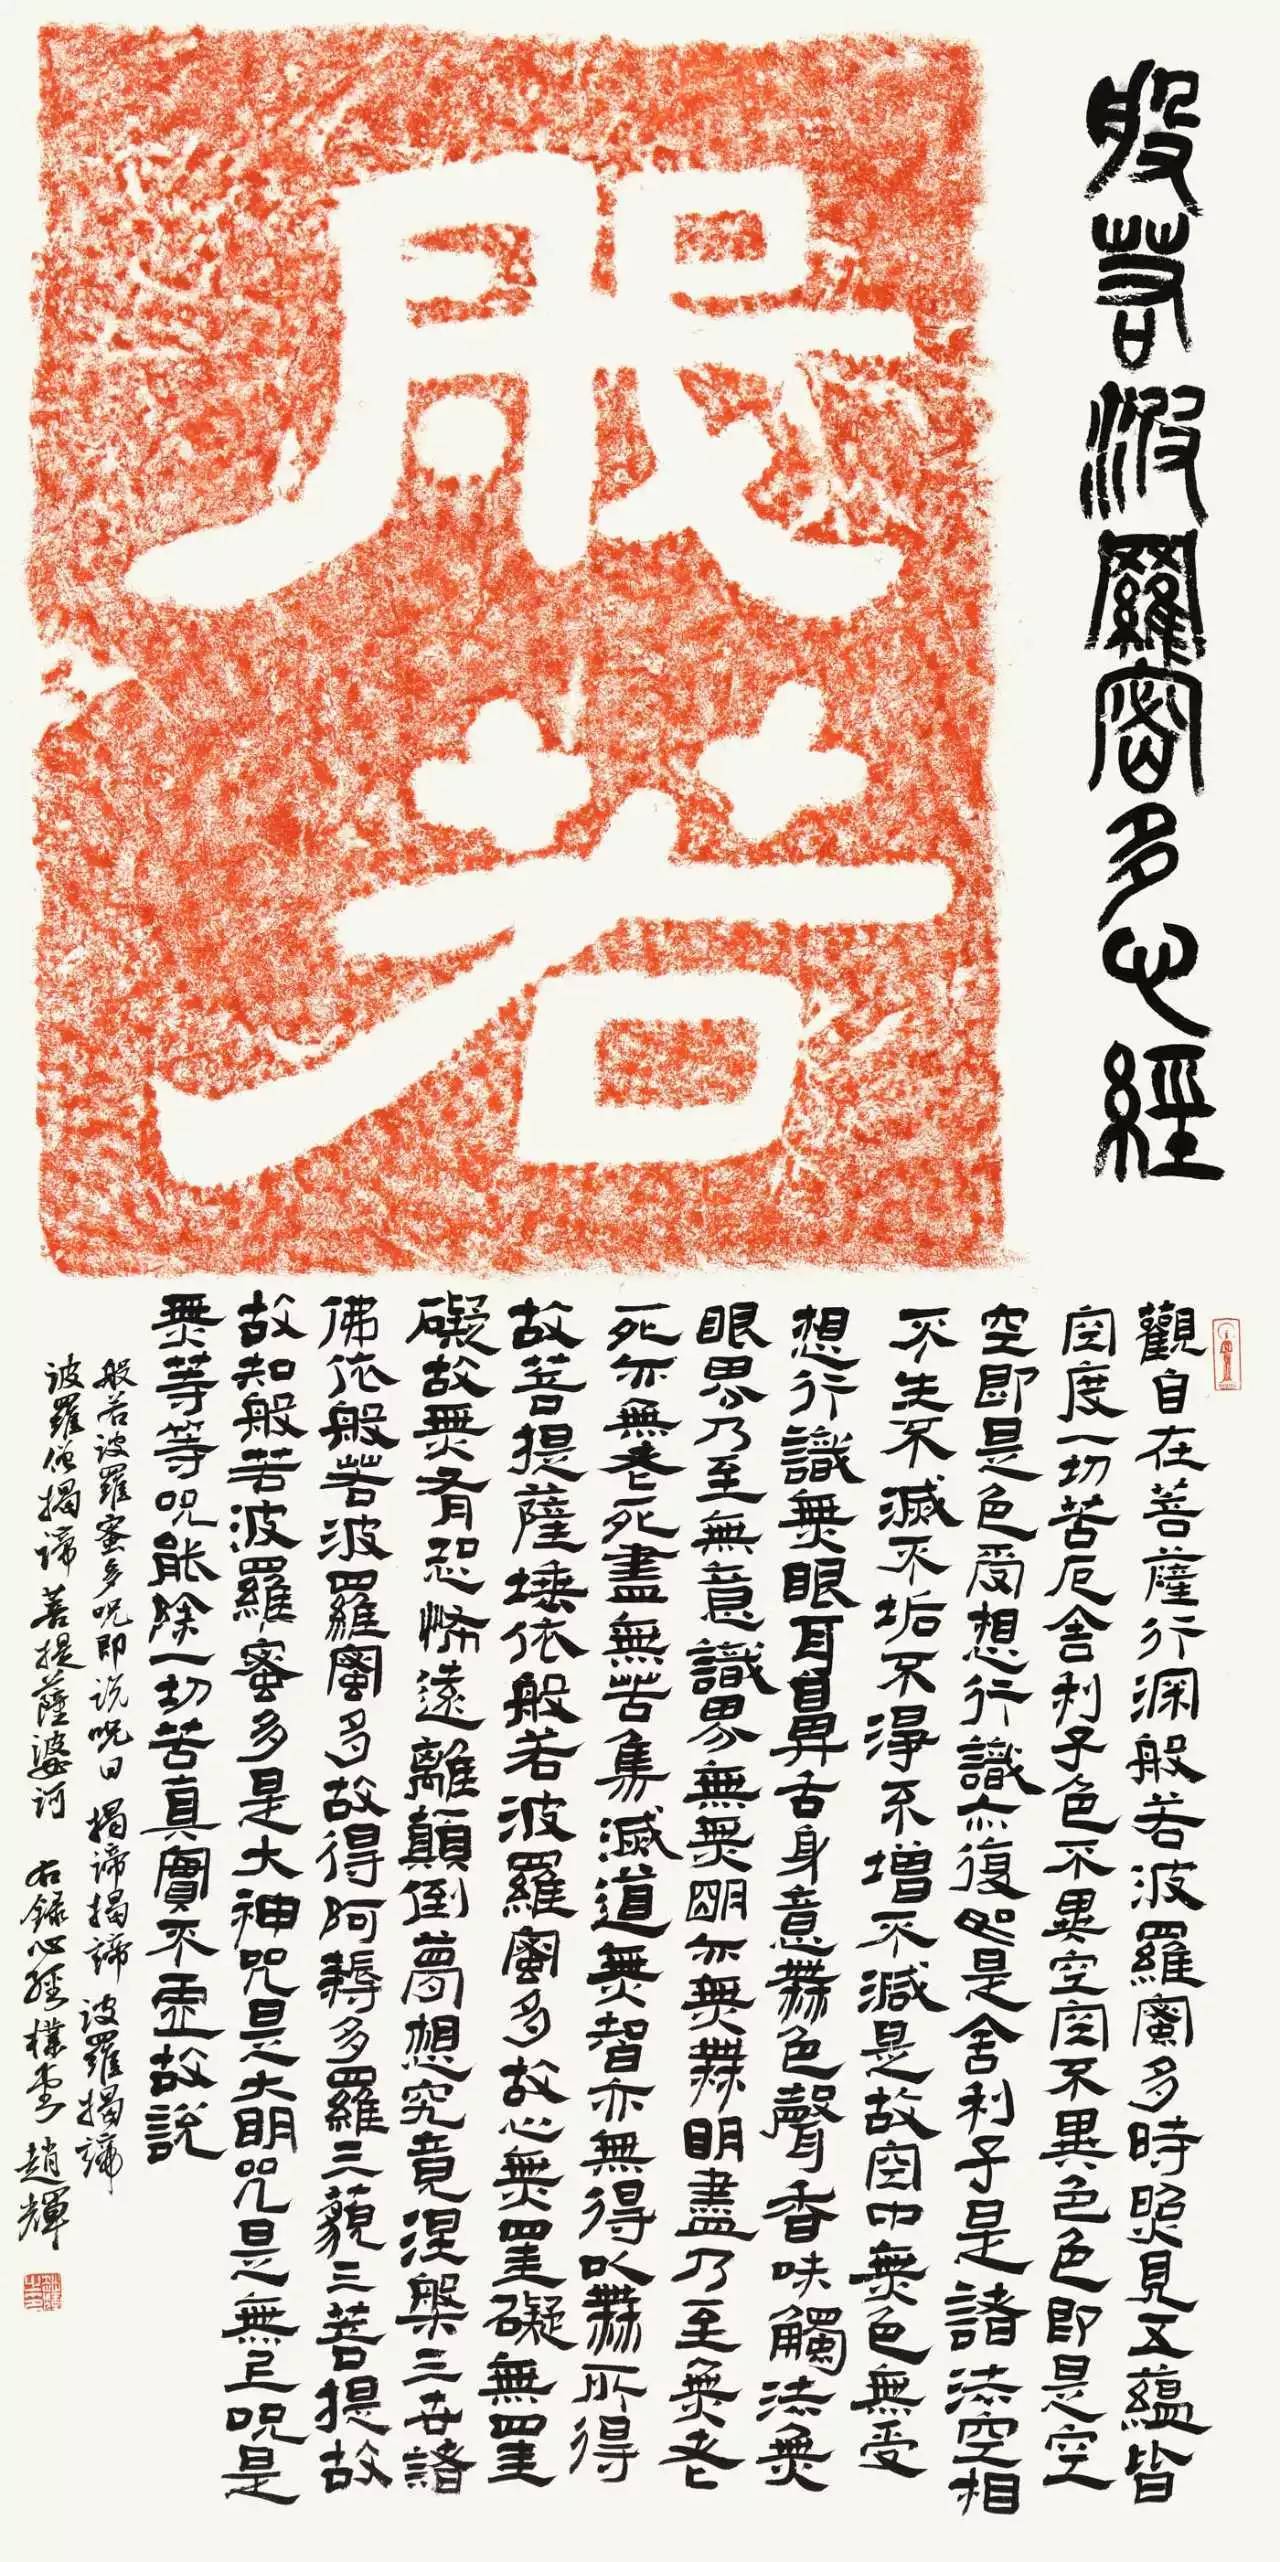 般若波羅密多心經
般若
觀自在菩薩行深般若波羅蜜多時照見五蘊皆
空度一切苦厄舍利子色不異空空不異色色即是空
空即是色受想行識亦復如是舍利子是諸法空相
不生不滅不垢不淨不增不減是故空中無色無受
想行識無眼耳鼻舌身意無色聲香味觸法無
眼界乃至無意識界無無明亦無無明盡乃至無老
死亦無老死盡無苦集滅道無智亦無得以無所得
故菩提薩埵依般若波羅蜜多故心無罣礙無罣
礙故無有恐怖遠離顛倒夢想究竟涅槃三世諸
佛依般若波羅蜜多故得阿耨多羅三藐三菩提故
故知般若波羅蜜多是大神咒是大明咒是無上咒是
無等等咒能除一切苦真實不虛故說
般若波羅蜜多咒即说咒曰 揭諦揭諦 波羅揭諦
波羅僧揭諦 菩提薩婆訶 右錄心經 樸堂 趙輝